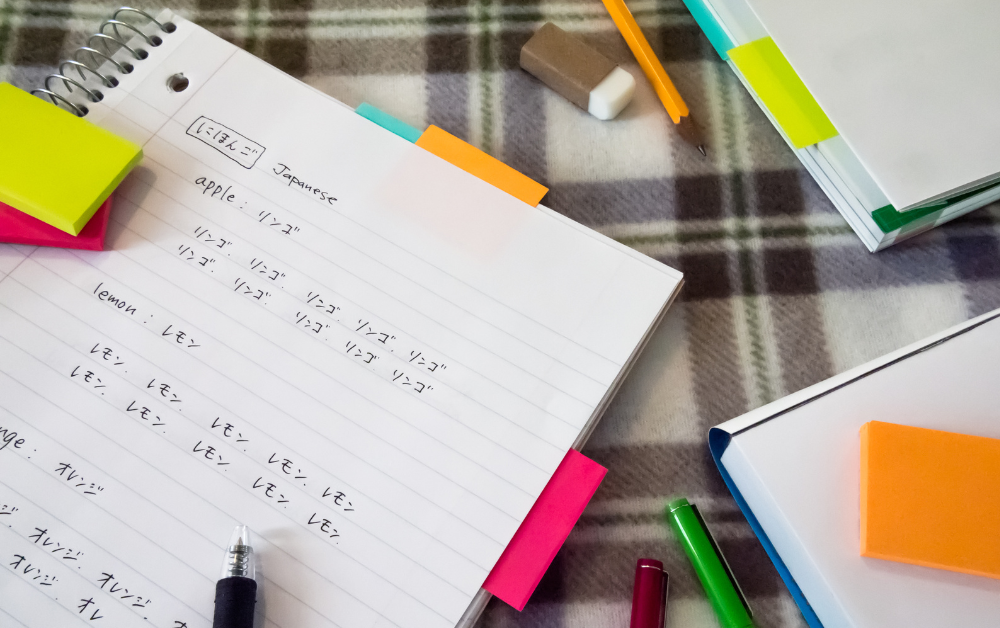 にほんご Japanese
apple : リンゴ
リンゴ. リンゴ. リンゴ. リンゴ. リンゴ
リンゴ. リンゴ. リンゴ. リンゴ. リンゴ
lemon : レモン
レモン. レモン. レモン. レモン. レモン
レモン. レモン. レモン. レモン. レモン.
nge : オレンジ
ジ. オレンジ. オレンジ. オ
オレンジ. オレ